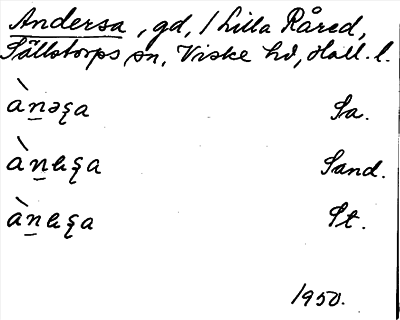 Andersa, gd, / Lilla Råred,
Sällstorps sn, Viske hd, Hall. l.
ànəʂa Sa.
ànɐʂa Sand.
ànɐʂa St.
1950.